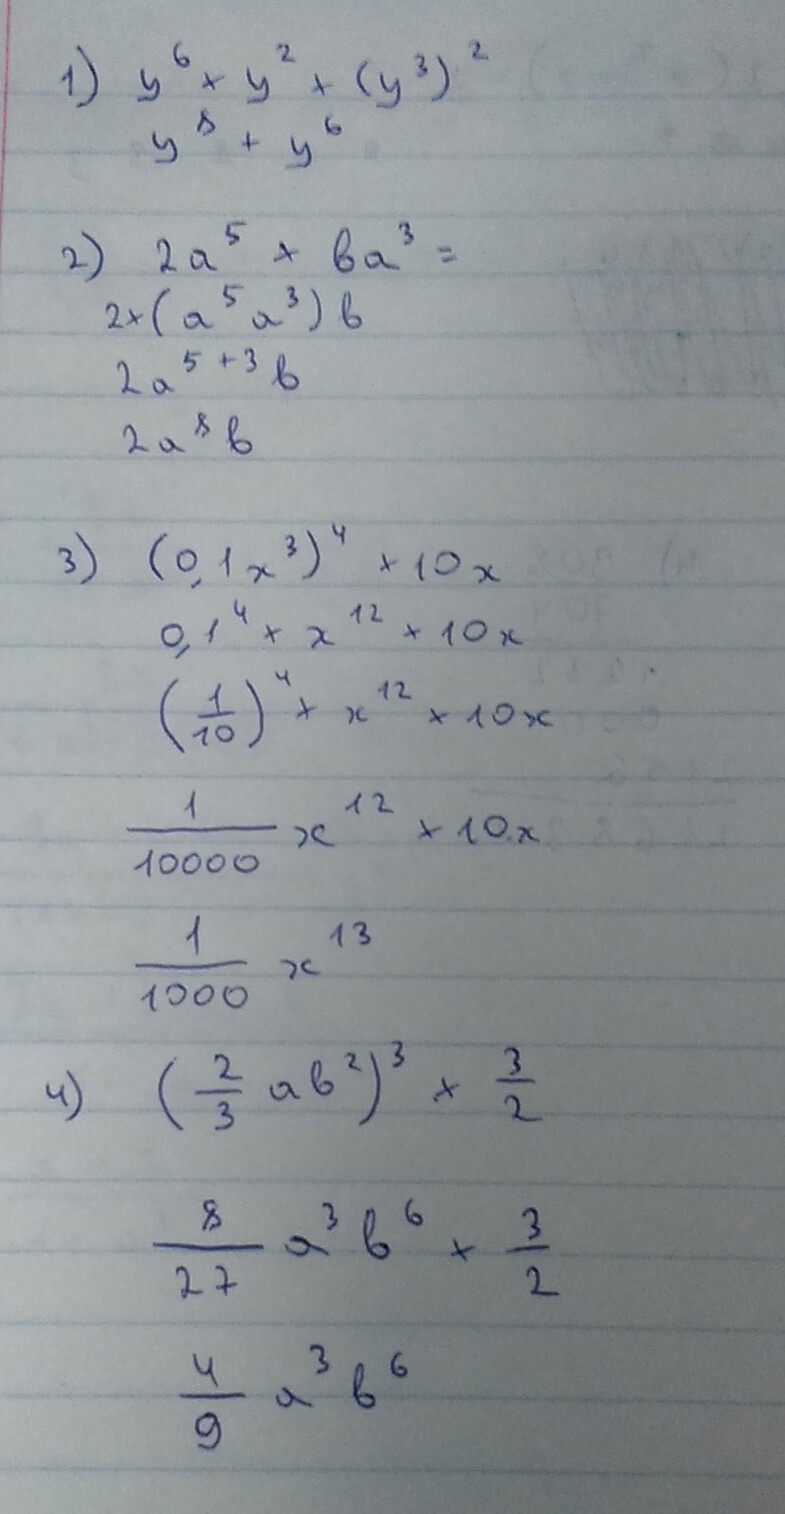 1) y⁶ × y² + (y³)²
y⁸ + y⁶
2) 2a⁵ × ba³ =
2×(a⁵a³)b
2a⁵⁺³b
2a⁸b
3) (0,1x³)⁴ × 10x
0,1⁴ × x¹² × 10x
(1/10)⁴ × x¹² × 10x
1/10000 x¹² × 10x
1/1000 x¹³
4) (2/3 ab²)³ × 3/2
8/27 a³b⁶ × 3/2
4/9 a³b⁶